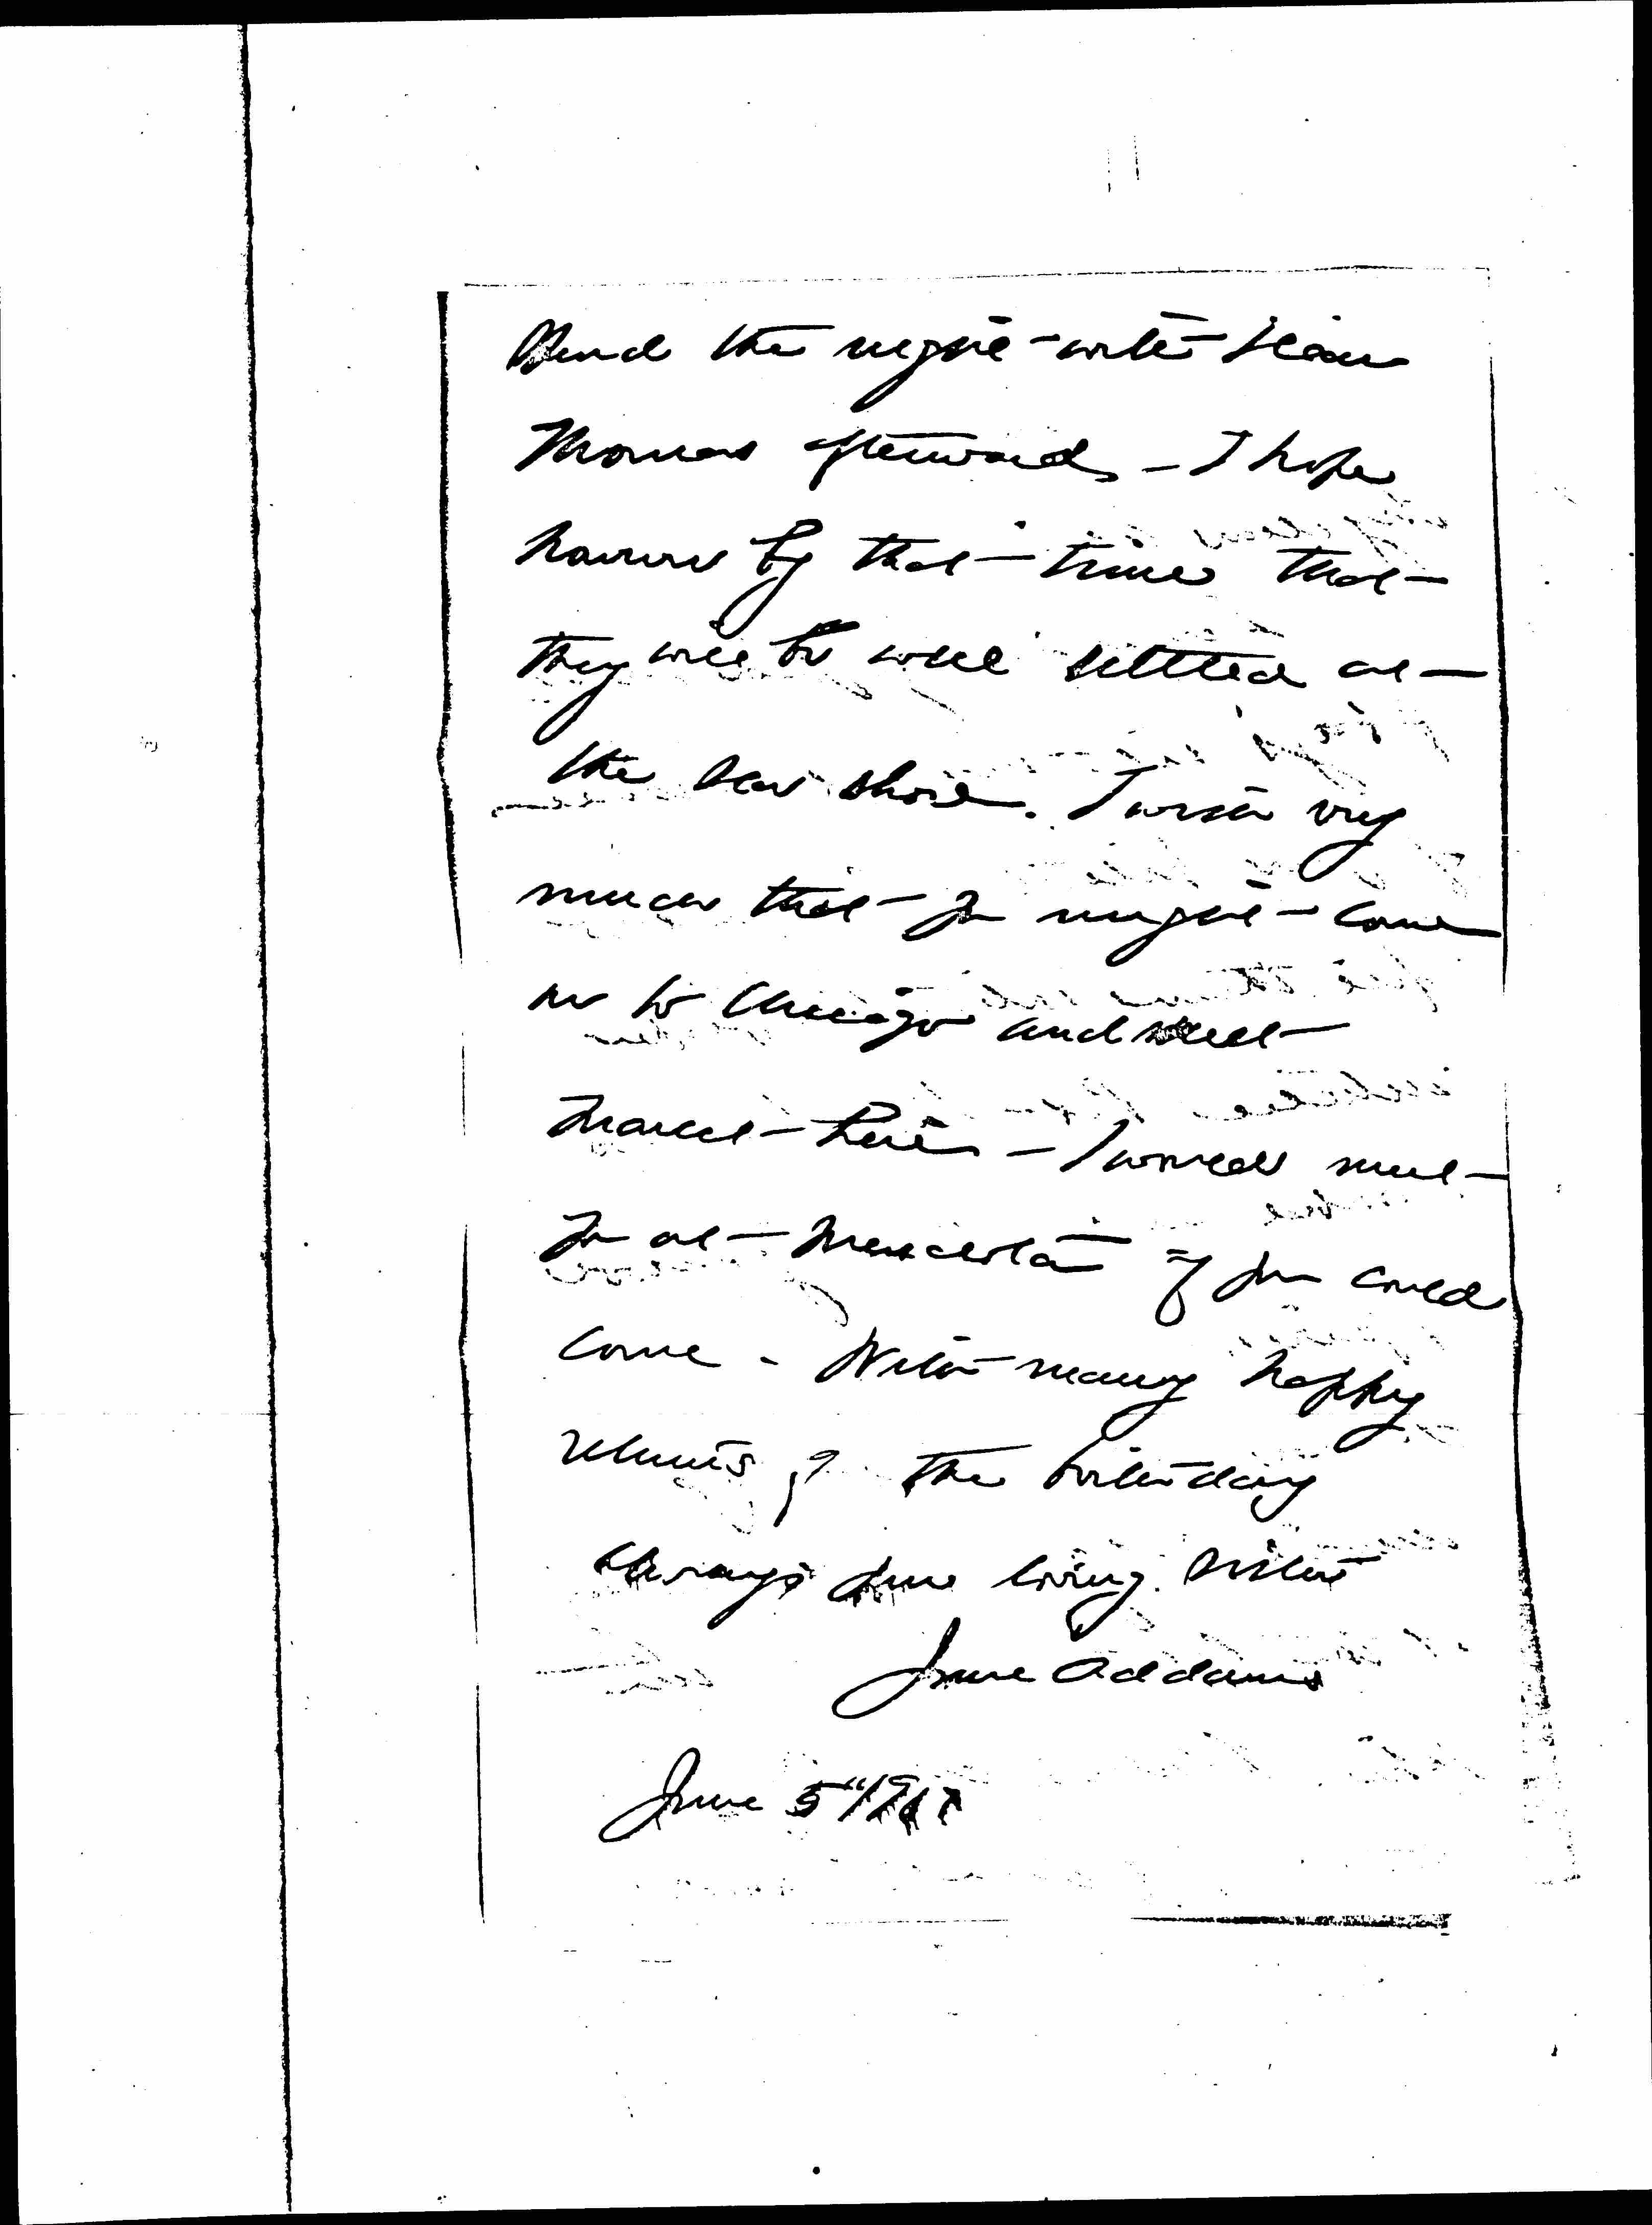 Spend the night with
Thomas afterwards - I hope
by that time that
they will be well settled at
the sea shore. I wish very
much that you might come
on to Chicago and meet
Marcet here - I would meet
you at Mendota if you could
come - With many happy
returns of the birthday
Always your loving sister
Jane Addams
June 5"